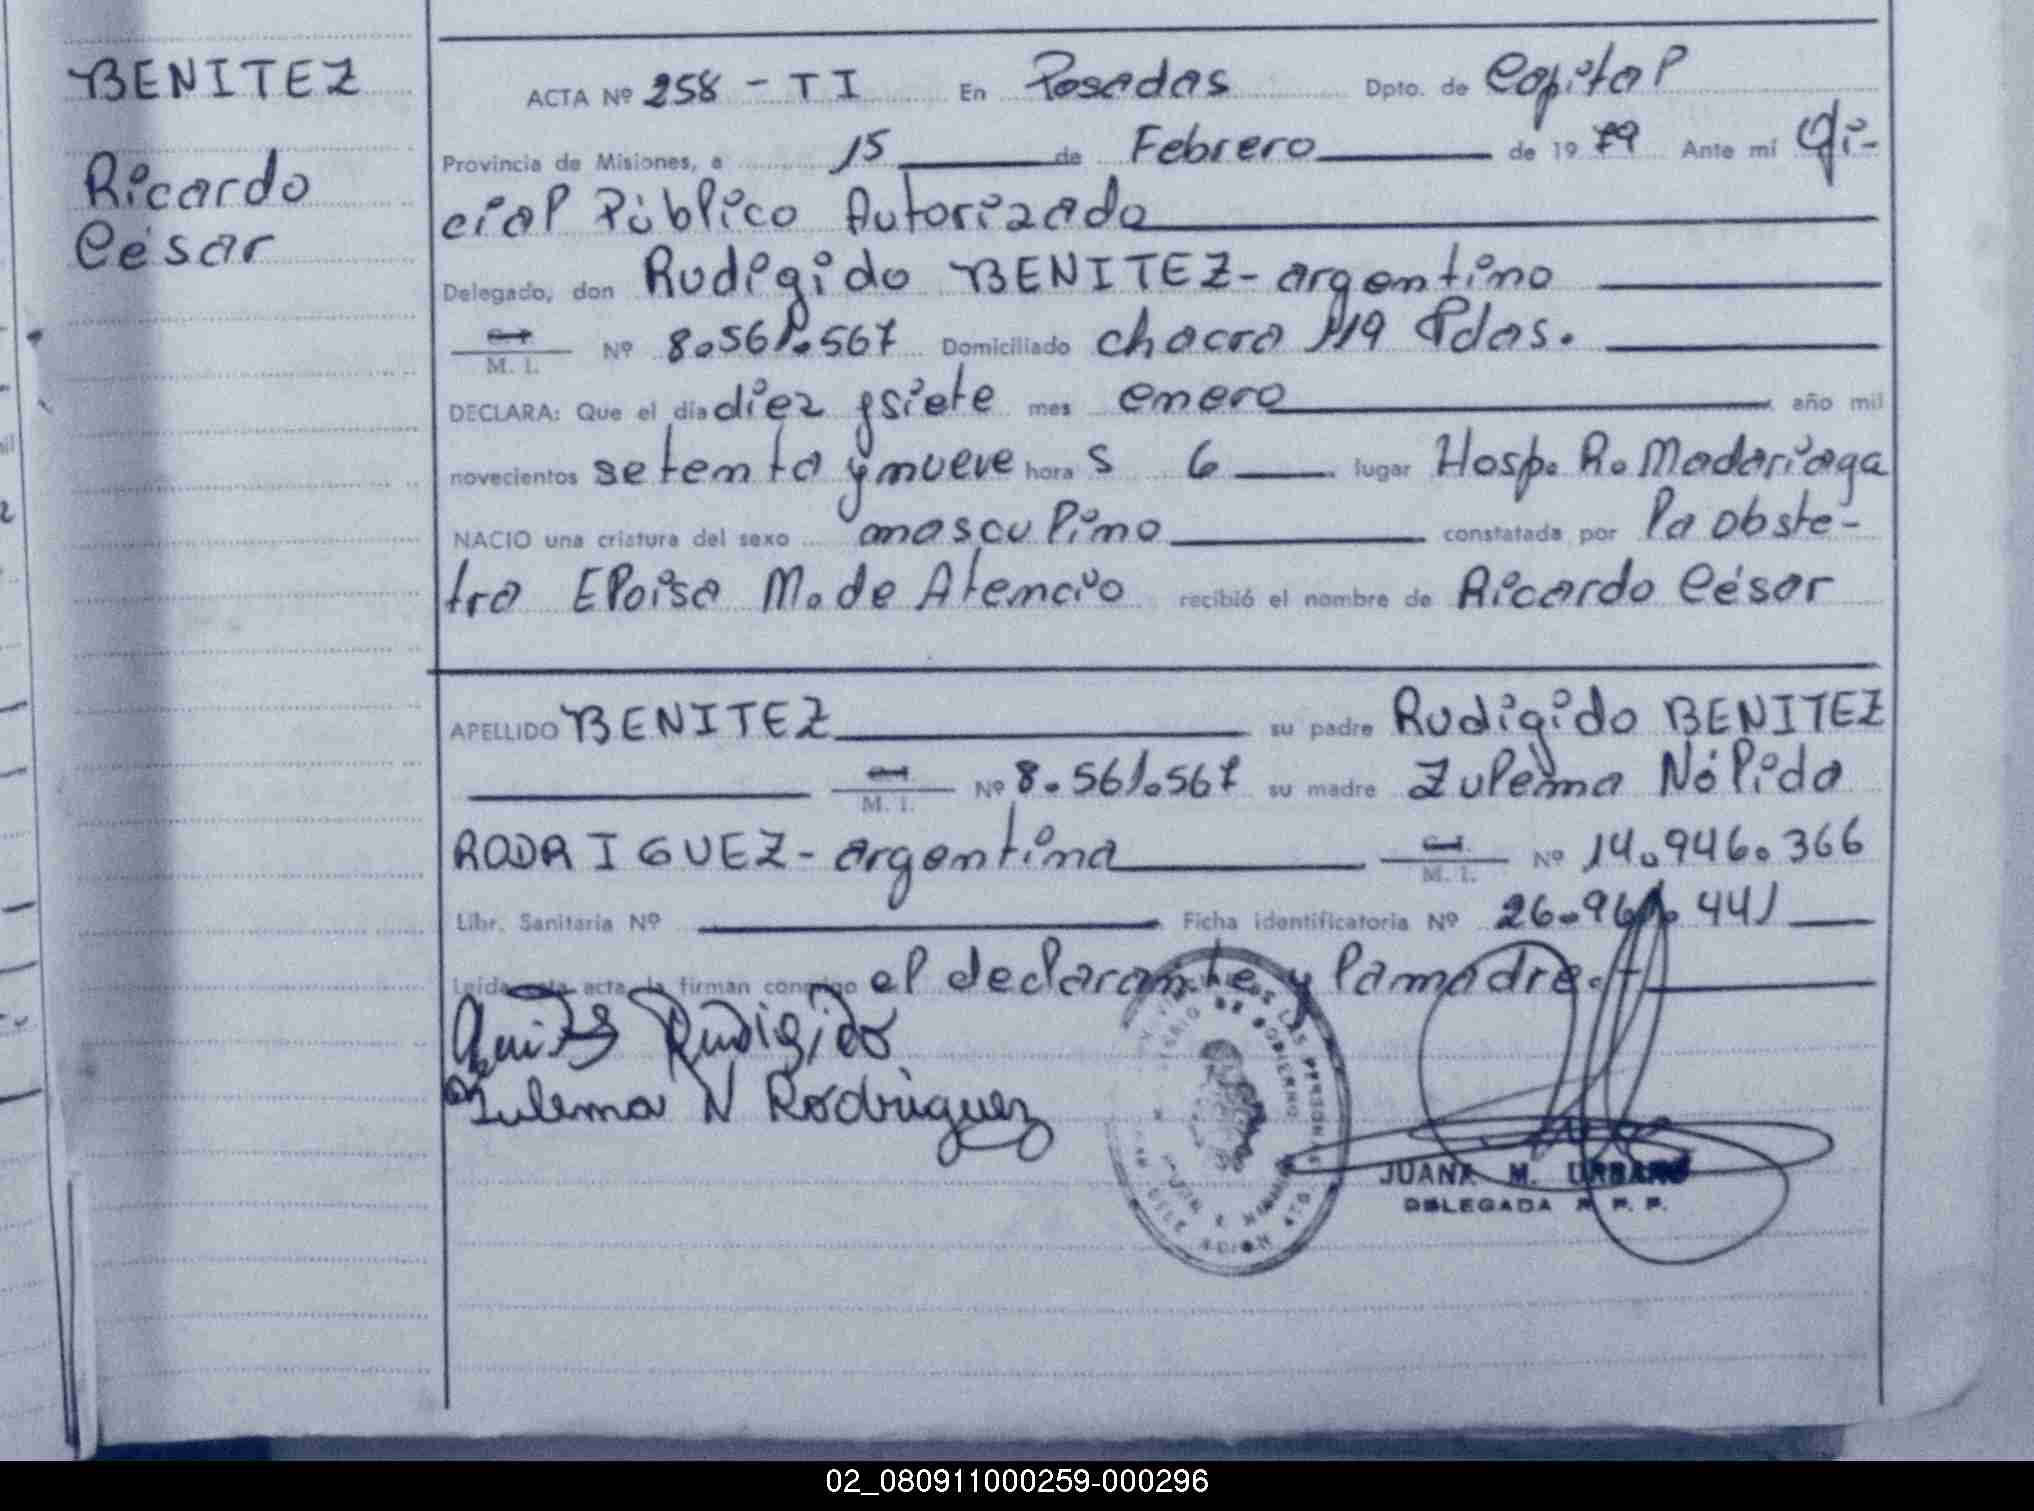 BENITEZ
Ricardo
César
ACTA Nº 258 - T I En Posadas Dpto. de Capital
Provincia de Misiones, a 15 de Febrero de 1979 Ante mi Ofi-
cial Público Autorizado
Delegado, don Rudigido BENITEZ - argentino
M. I. Nº 8.561.567 Domiciliado chacra 119 Pdas.
DECLARA: Que el día diez y siete mes enero año mil
novecientos setenta y nueve hora s 6 lugar Hosp. R. Madariaga
NACIO una criatura del sexo masculino constatada por la obste-
tra Eloisa M. de Atencio recibió el nombre de Ricardo César
APELLIDO BENITEZ su padre Rudigido BENITEZ
M. I. Nº 8.561.567 su madre Zulema Nélida
RODRIGUEZ - argentina M. I. Nº 14.946.366
Libr. Sanitaria Nº Ficha identificatoria Nº 26.961.441
Leída esta acta la firman conmigo el declarante y la madre.-
Rudigido
Zulema N Rodriguez
JUANA M. URBANO
DELEGADA R. P. P.
02_080911000259-000296